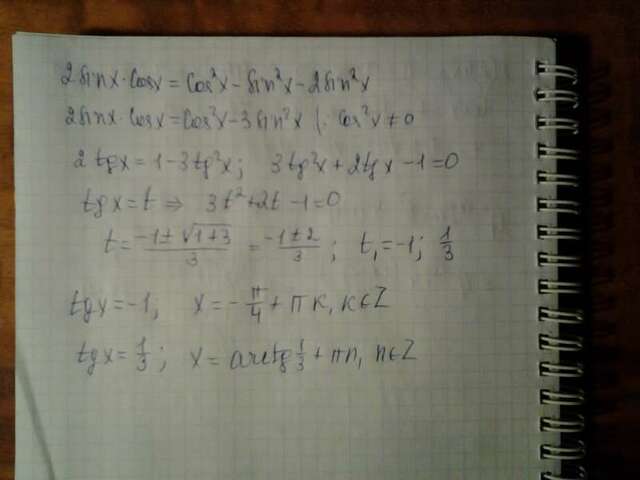 2 sinx · cosx = cos²x - sin²x - 2 sin²x
2 sinx · cosx = cos²x - 3 sin²x |: cos²x ≠ 0
2 tgx = 1 - 3tg²x; 3tg²x + 2tgx - 1 = 0
tgx = t ⇒ 3t² + 2t - 1 = 0
t = (-1 ± √(1+3))/3 = (-1 ± 2)/3; t₁ = -1; 1/3
tgx = -1; x = -π/4 + πk, k∈Z
tgx = 1/3; x = arctg 1/3 + πn, n∈Z